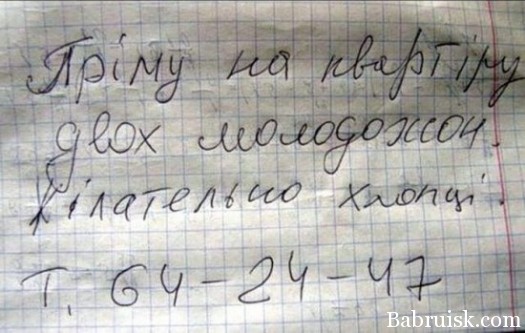 Пріму на квартіру
двох молодожон.
Жілательно хлопці.
т. 64-24-47
Babruisk.com